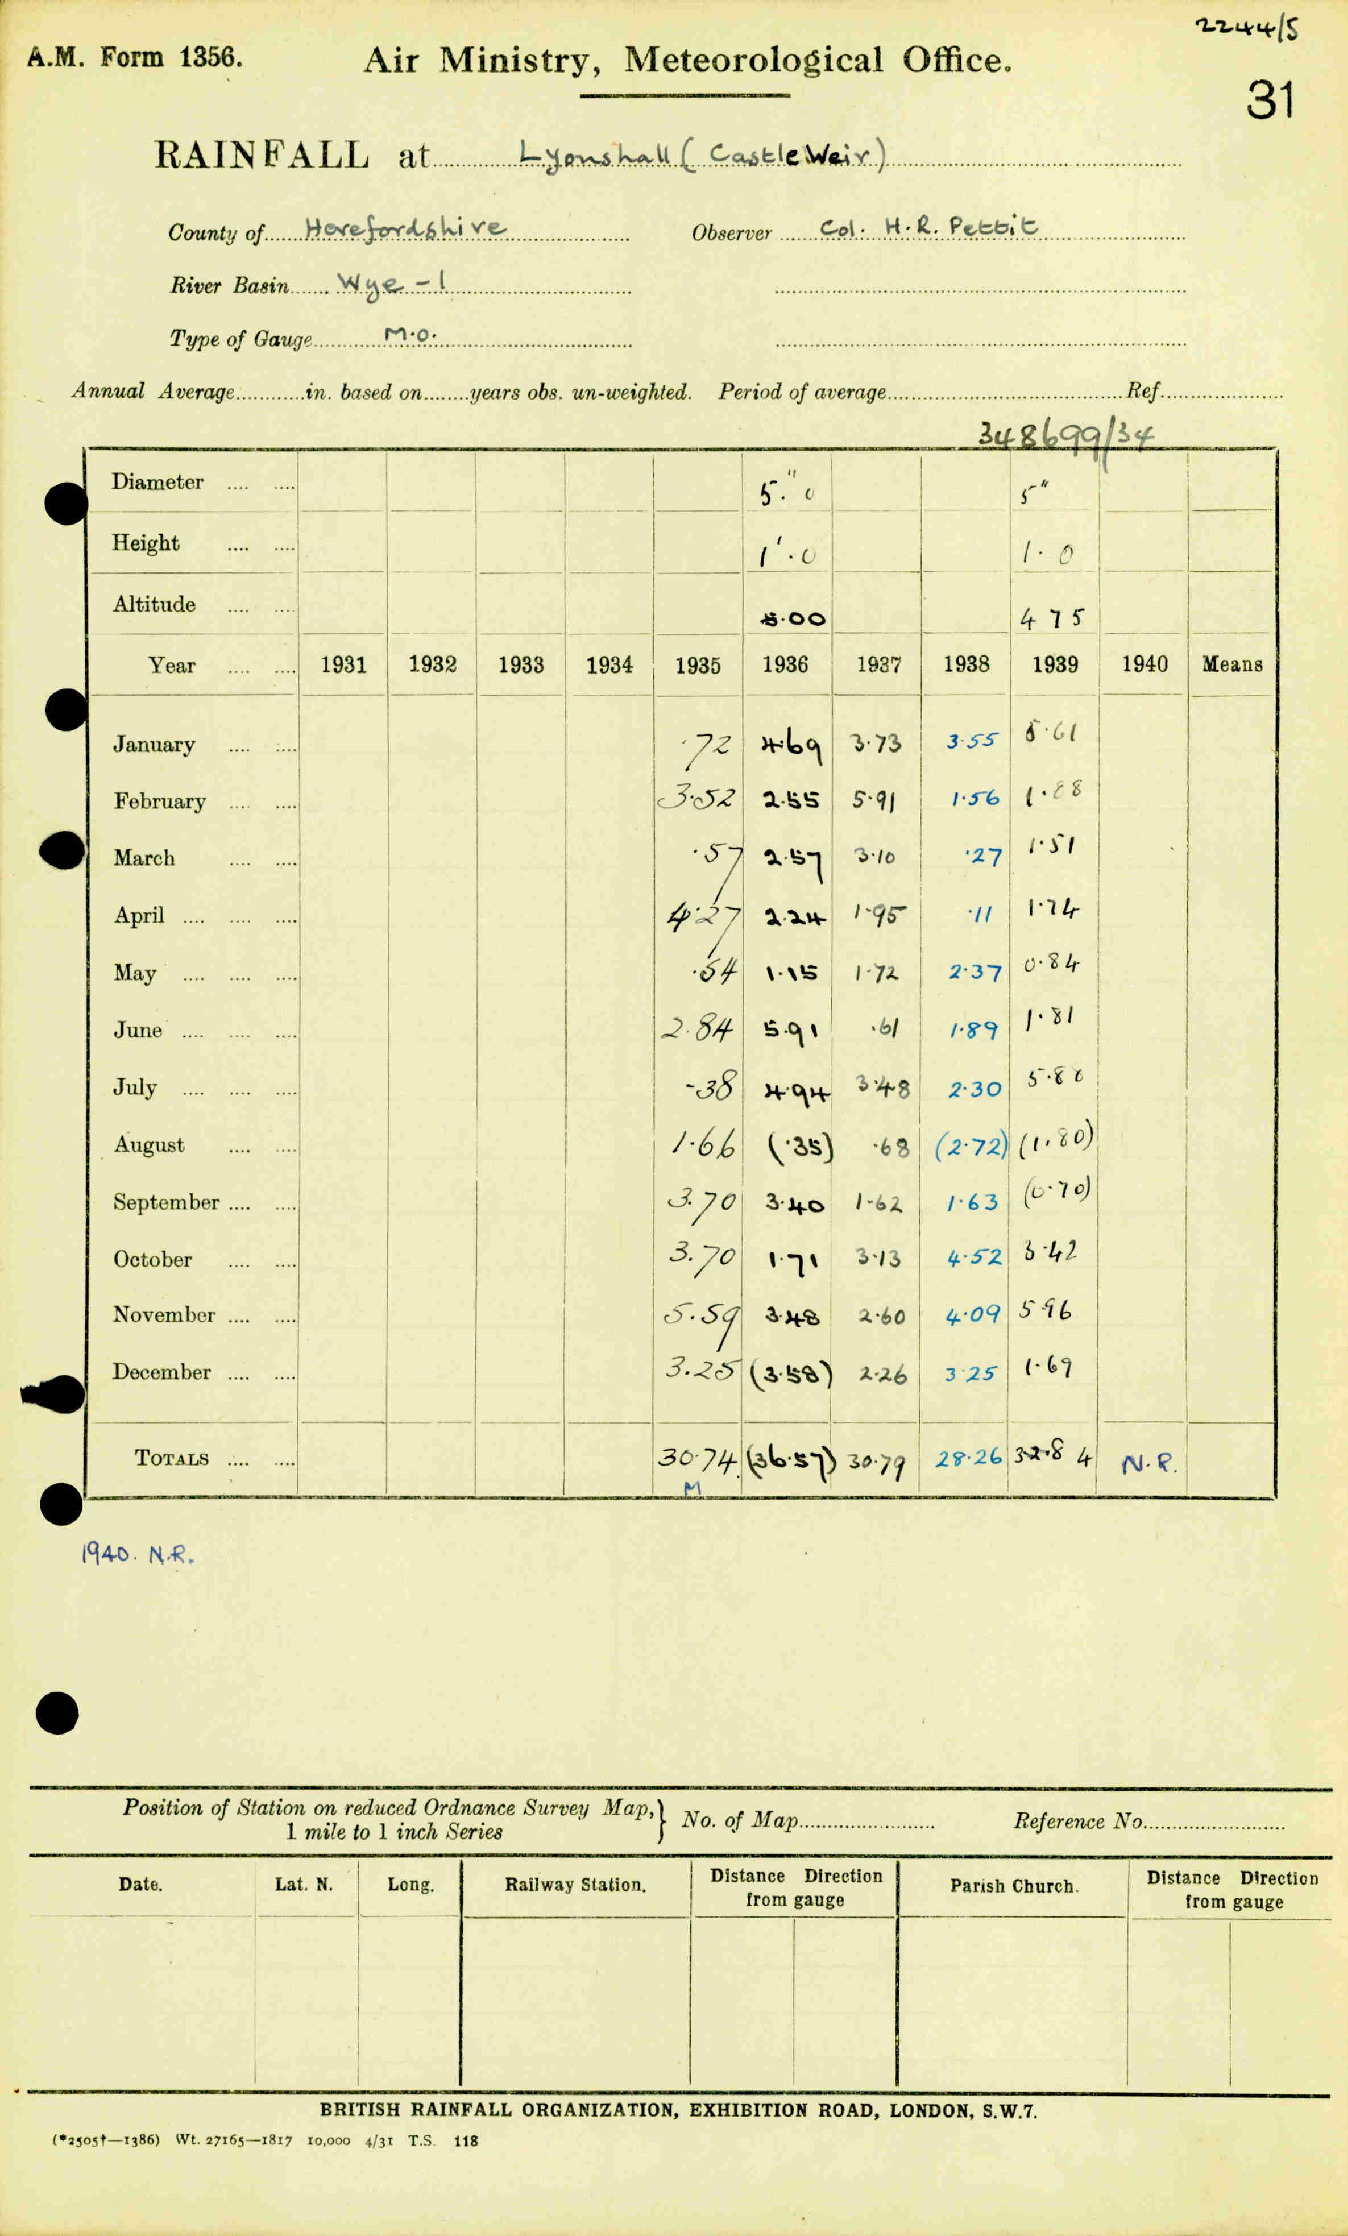 2244/5
A.M. Form 1356. Air Ministry, Meteorological Office.
31
RAINFALL at Lyonshall (Castle Weir)
County of Herefordshire Observer Col. H.R. Pettit
River Basin Wye - 1
Type of Gauge M.O.
Annual Average in. based on years obs. un-weighted. Period of average Ref
348699/34
Diameter 5."0 5"
Height 1'.0 1.0
Altitude 500 475
Year 1931 1932 1933 1934 1935 1936 1937 1938 1939 1940 Means
January .72 4.69 3.73 3.55 5.61
February 3.52 2.55 5.91 1.56 1.88
March .57 2.57 3.10 .27 1.51
April 4.27 2.24 1.95 .11 1.74
May .54 1.15 1.72 2.37 0.84
June 2.84 5.91 .61 1.89 1.81
July .38 4.94 3.48 2.30 5.88
August 1.66 (.35) .68 (2.72) (1.80)
September 3.70 3.40 1.62 1.63 (0.70)
October 3.70 1.71 3.13 4.52 3.42
November 5.59 3.48 2.60 4.09 5.96
December 3.25 (3.58) 2.26 3.25 1.69
TOTALS 30.74 (36.57) 30.79 28.26 32.84 N.R.
M
1940. N.R.
Position of Station on reduced Ordnance Survey Map,} No. of Map Reference No.
1 mile to 1 inch Series
Date. Lat. N. Long. Railway Station. Distance Direction from gauge Parish Church. Distance Direction from gauge
BRITISH RAINFALL ORGANIZATION, EXHIBITION ROAD, LONDON, S.W.7.
(*2505†—1386) Wt. 27165—1817 10,000 4/31 T.S. 118